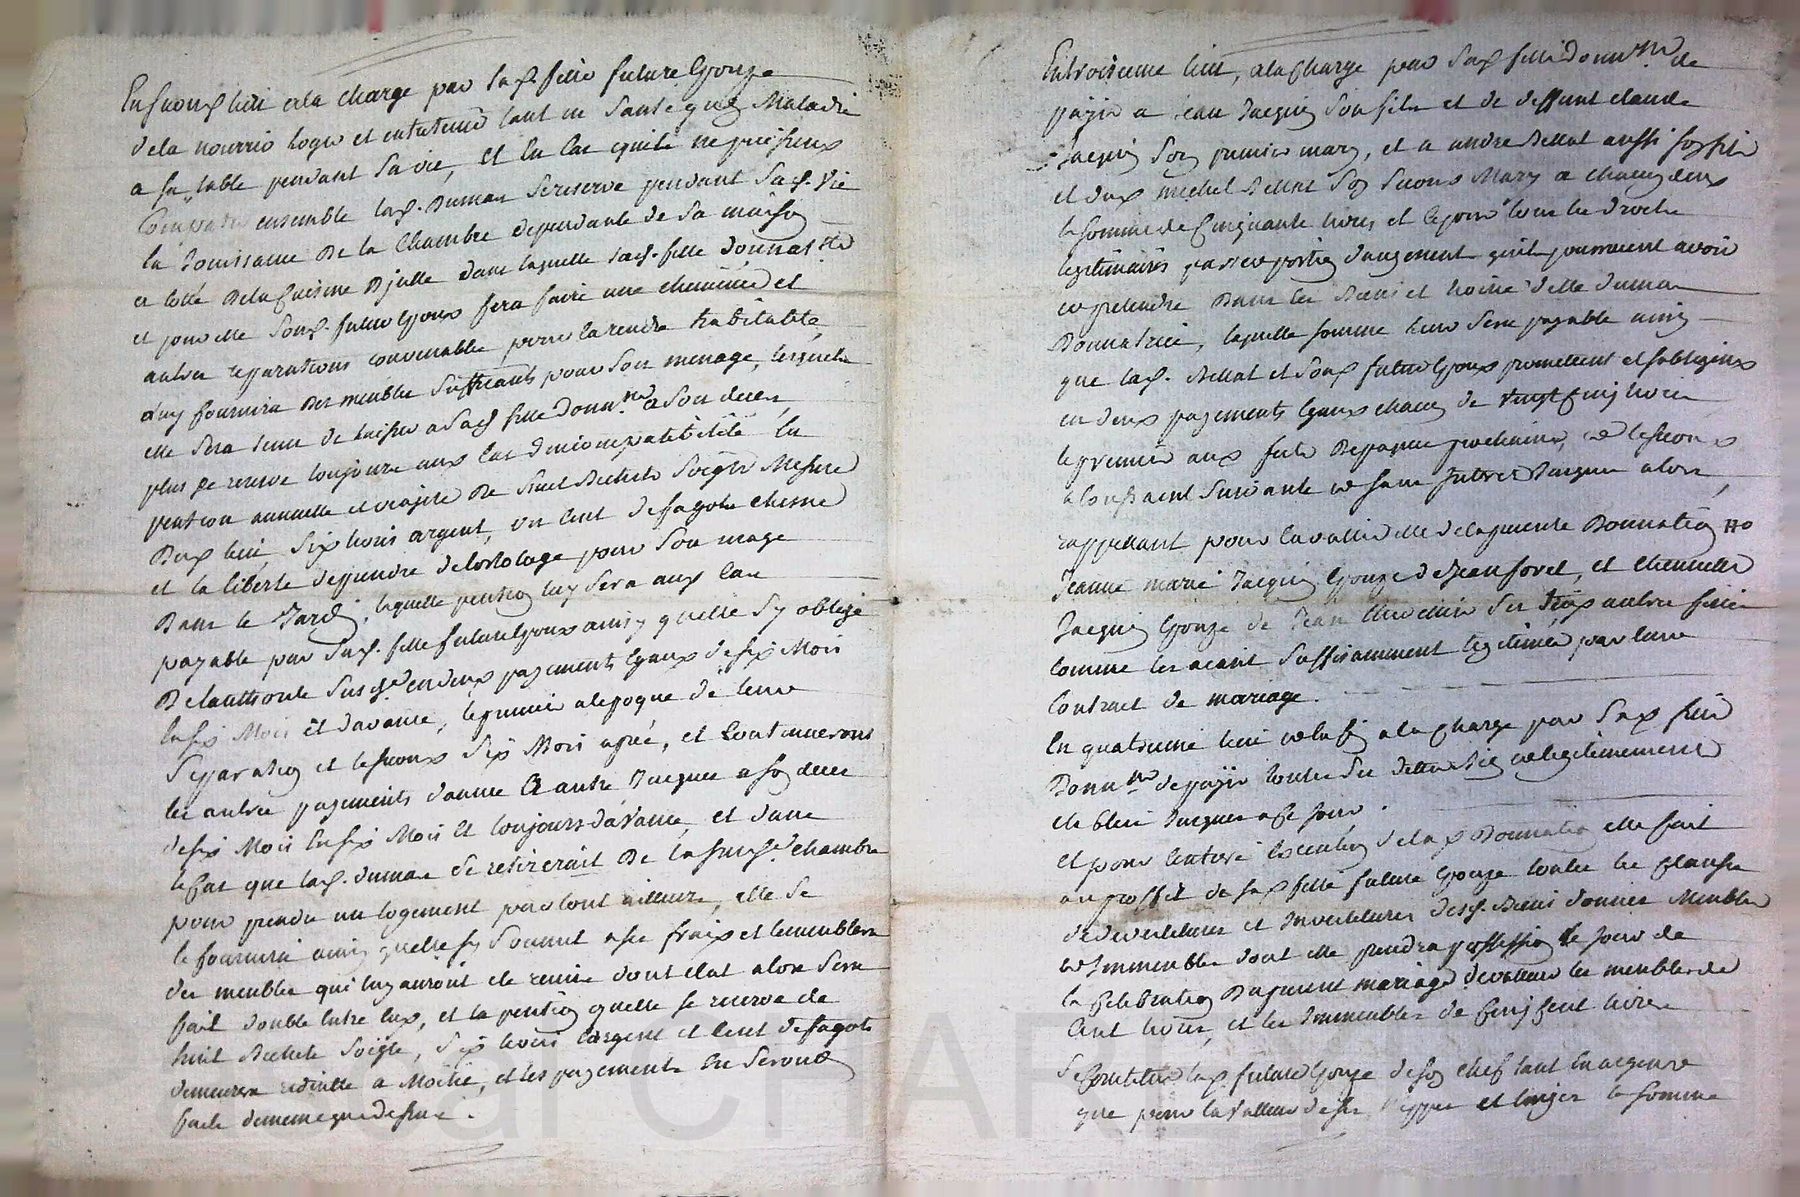 En second lieu a la charge par sad. fille future Epouze
de la nourrir loger et entretenir tant en Santé quen Maladie
a sa table pendant sa vie, Et En Cas quils ne puissent
Compatir ensemble lad. Dumas se reserve pendant sad. vie
la Jouissance De la Chambre dependante de sa maison
a coté De la Cuisine D'jcelle dans laquelle sad. fille donnat.re
et pour elle Sond. futur Epoux fera faire une cheminée et
autres repparations convenables pour la rendre habitable,
quy fournira Des meubles suffisants pour son menage, lesquels
elle sera tenue de laisser a sad. fille donn.re a son deces,
plus se reserve toujours aux Cas d'incompatibilité La
pention annuelle et viagere De huit Bichets Soigle Mesure
Dud. lieu, six livres argent, un Cent de fagots chesne
et la liberté de prendre de lortolage pour son usage
Dans le Jardin, laquelle pention luy sera aux Cas
payable par sad. fille future Epouze ainsy quelle sy oblige
De lauthorité susd. en deux payements Egaux de six Mois
En six Mois et davance, le premier a lepoque de leur
Separation et le second six Mois après, et Continueront
les autres payements danné En autre Jusques a son deces
de six Mois En six Mois Et toujours davance, et dans
le Cas que lad. dumas se retirerait De la susd. chambre
pour prendre un logement par tout ailleurs, elle se
le fournira ainsy quelle sy soumet a ses fraix et lemeublera
des meubles qui luy auront ete remis dont etat alors sera
fait double Entre Eux, et la pention quelle se reserve de
huit Bichets Soigle, six livres dargent et Cent de fagots
demeurera reduitte a Moitié, et les payements En seront
faits de meme que dessus.
En troisieme lieu, a la Charge par sad. fille donn.re de
payer a Jean Jacquin son fils et de deffunt claude
Jacquin son premier mary, et a andre Bellat aussi son fils
et dud. michel Bellat son second Mary a chacun deux
la somme de Cinquante livres et Ce pour tous les droits
legitimaires part et portion daugment quils pourroient avoir
et pretendre Dans les Biens et hoirie d'elle dumas
Donnatrice, laquelle somme leur sera payable ainsy
que lad. Bellat et Sond. futur Epoux promettent et sobligent
en deux payements Egaux chacun de vingt Cinq livres
le premier aux fetes De paques prochaines, et le second
a la st. Saint suivante et sans Jnterest Jusques alors,
rappellant pour la validité de la presente Donnation
Jeanne marie Jacquin Epouze de Jean forel, et
Jacquin Epouze de Jean ses deux autres filles
Comme les ayant suffisamment legitimées par leurs
Contract de mariage.
En quatrieme lieu et enfin a la Charge par sad. fille
Donn.re de payer toutes ses dettes Bien et legitimement
etablies Jusques a ce jour.
et pour lentiere Execution de lad. Donnation elle fait
au proffit de sad. fille future Epouze toutes les Clauses
de devetitures et Jnvetitures desd. Biens donnés Meubles
et Jmmeubles dont elle prendra possession le jour de
la Celebration Du present mariage declarant les meubles de
Cent livres, et les Jmmeubles de Cinq Cent livres
Se Constitue lad. future Epouze de son chef tant En argent
que pour la valleur de ses nippes et linges la somme